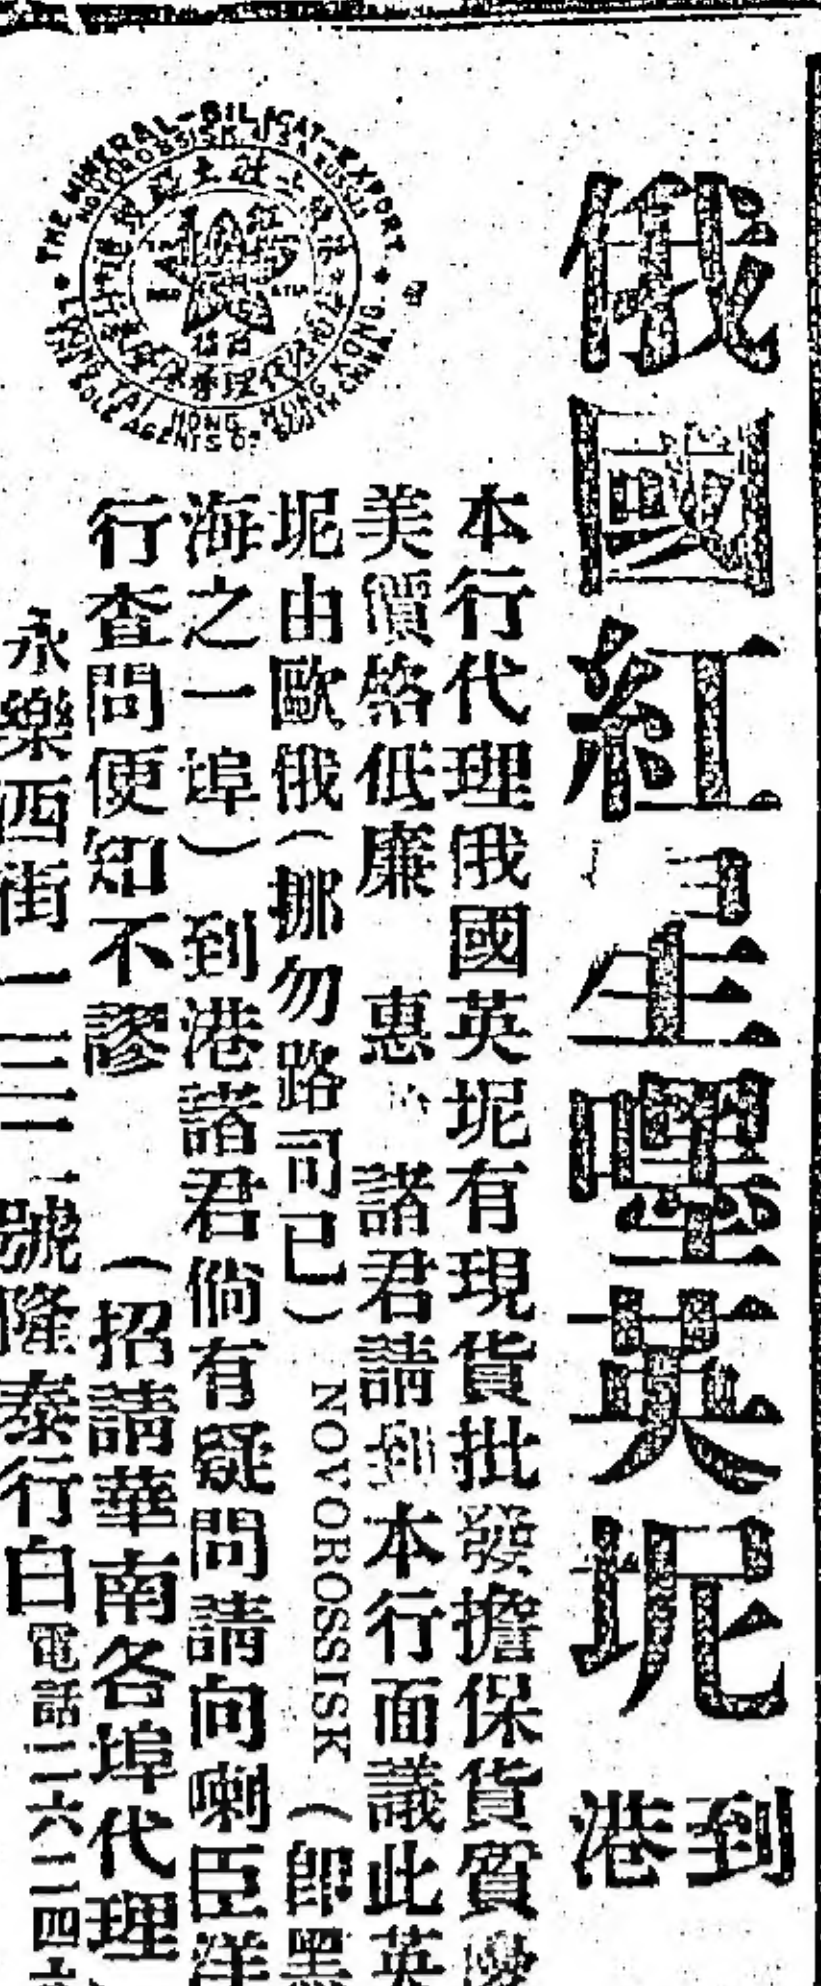 俄國紅星嘜英坭 到港
本行代理俄國英坭有現貨批發擔保貨質優
美價格低廉 惠 諸君請到本行面議此英
坭由歐俄(挪勿路司已) NOVOROSSISK (即黑
海之一埠)到港諸君倘有疑問請向喇臣洋
行查問便知不謬 (招請華南各埠代理
永樂西街一 號隆泰行白 電話二六二四
THE MINERAL-SILICAT-EXPORT
NOVOROSSISK U.S.S.R. RUSSIA
紅星
RED STAR
LUNG TAI HONG, HONG KONG.
THE SOLE AGENTS OF SOUTH CHINA.